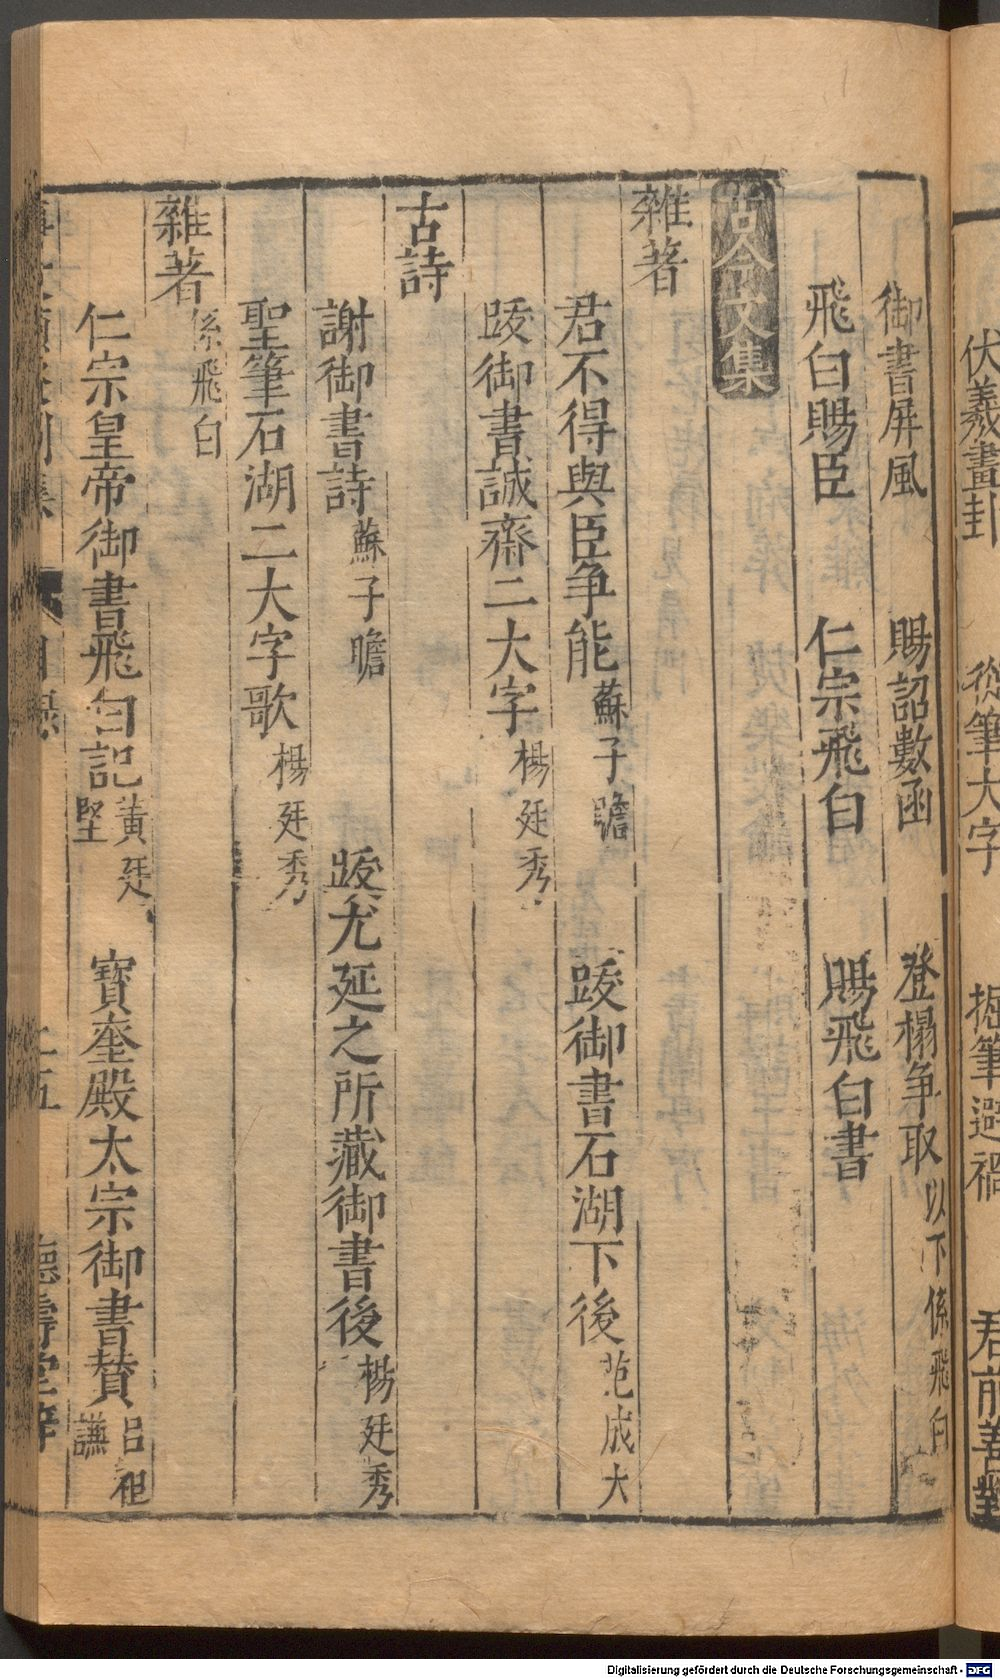 伏羲畫卦　從筆大字　掘筆避禍　君前善對
御書屏風　賜詔數函　登榻争取　以下係飛白
飛白賜臣　仁宗飛白　賜飛白書
古今文集
雜著
君不得與臣争能　蘇子瞻　跋御書石湖下後　范成大
跋御書誠齋二大字　楊廷秀
古詩
謝御書詩　蘇子瞻　跋尤延之所藏御書後　楊廷秀
聖筆石湖二大字歌　楊廷秀
雜著　係飛白
仁宗皇帝御書飛白記　黄廷堅　寶奎殿太宗御書贊　呂祖謙
目録　十五　德壽堂梓
Digitalisierung gefördert durch die Deutsche Forschungsgemeinschaft - DFG